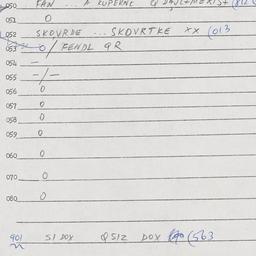 050 FAN ... A KUPERNC
051 0
052 SKOVRDE ... SKOVRTKE xx (013
053 0/FENDL QR
054 —
055 -/-
056 0
057 0
058 0
059 0
060 0
070 0
080 0
901 SI DOX QSIZ DOX (563